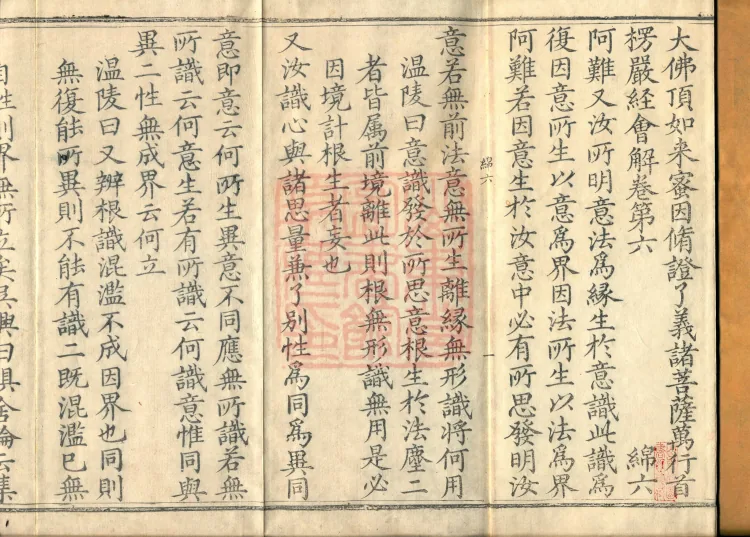 大佛頂如来蜜因脩證了義諸菩薩萬行首
楞嚴経會解卷第六 綿六
阿難又汝所明意法爲緣生於意識此識爲
復因意所生以意爲界因法所生以法爲界
阿難若因意生於汝意中必有所思發明汝
綿六
一
意若無前法意無所生離緣無形識將何用
温陵曰意識發於所思意根生於法塵二
者皆属前境離此則根無形識無用是必
因境計根生者妄也
又汝識心與諸思量兼了別性爲同爲異同
意即意云何所生異意不同應無所識若無
所識云何意生若有所識云何識意惟同與
異二性無成界云何立
温陵曰又辨根識混濫不成因界也同則
無復能所異則不能有識二既混濫巳無
自性則界無所立矣吳興曰具舍論云集